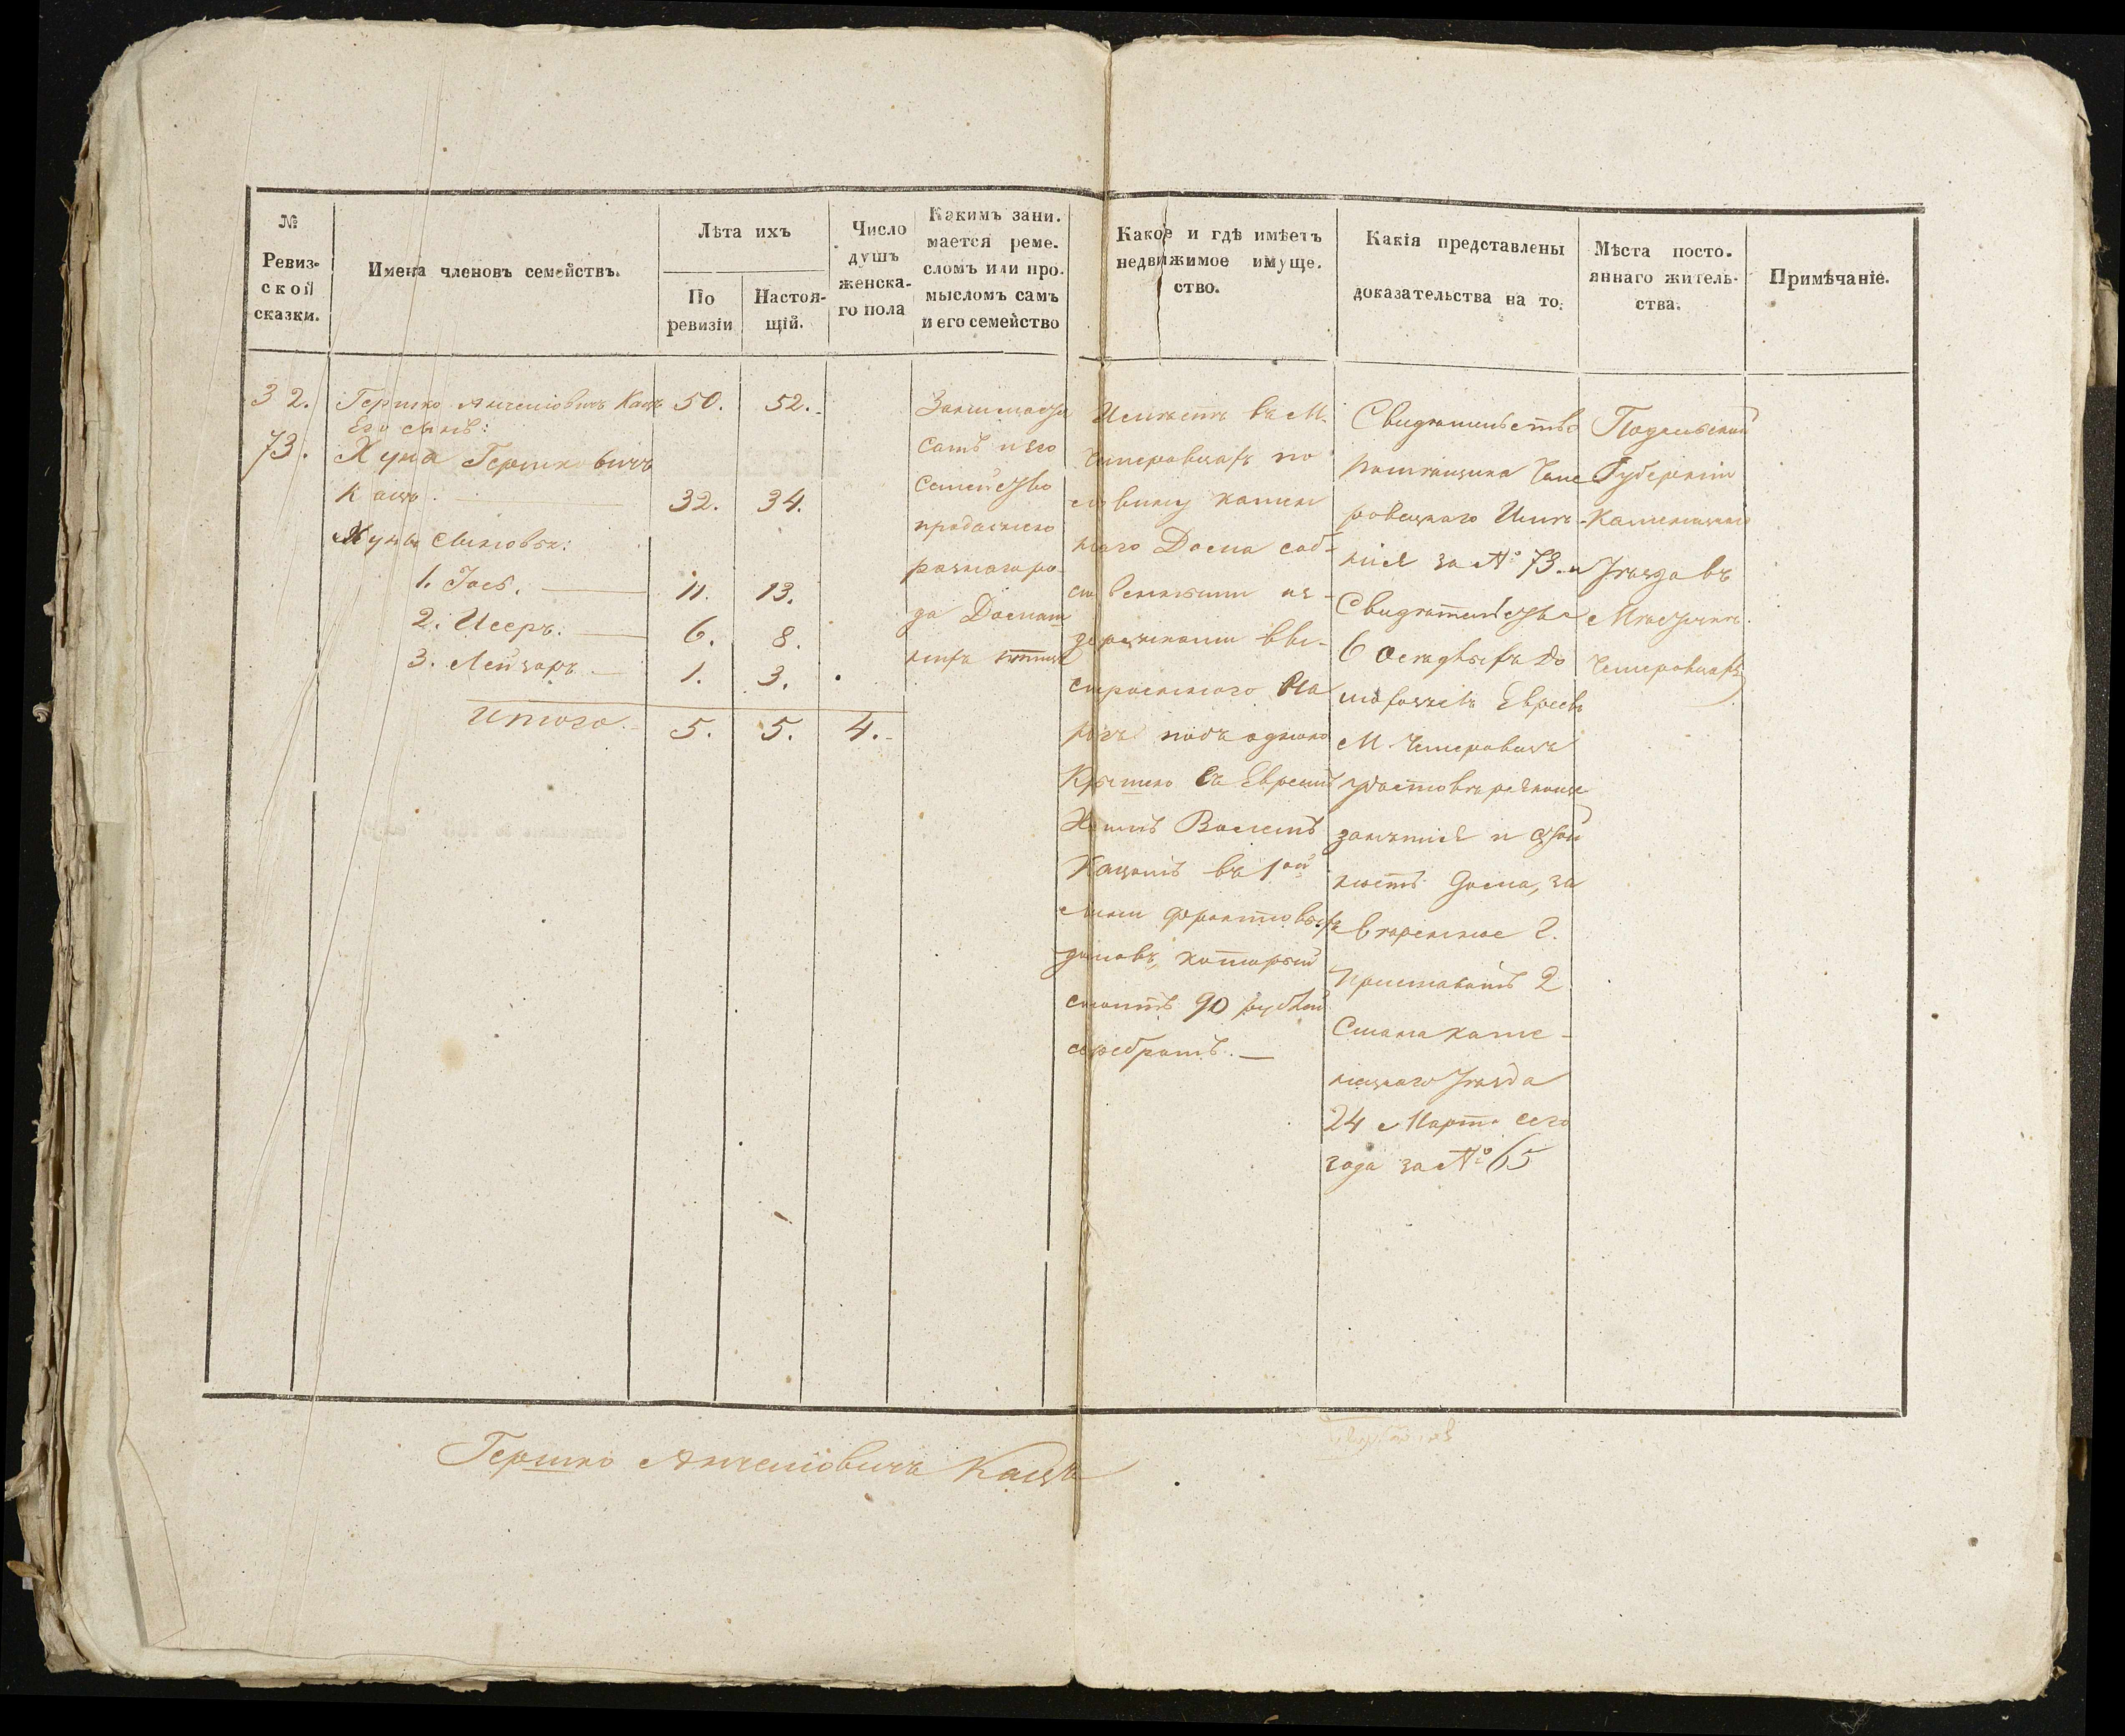 №
Ревиз-
ской
сказки.
Имена членовъ семействъ.
Лѣта ихъ
По
ревизіи
Настоя-
щій.
Число
душъ
женска-
го пола
Какимъ зани-
мается реме-
сломъ или про-
мысломъ самъ
и его семейство
Какое и гдѣ имѣетъ
недвижимое имуще-
ство.
Какія представлены
доказательства на то.
Мѣста посто-
яннаго житель-
ства.
Примѣчаніе.
32.
73.
Гершко Анчелiовичъ Кацъ 50. 52.
Его сынъ:
Хуна Гершковичъ
Кацъ. 32. 34.
Хуны сыновья:
1. Іось. 11. 13.
2. Исеръ. 6. 8.
3. Лейзоръ 1. 3.
Итого. 5. 5. 4.
Занимается
самъ и его
семейство
продажею
разнаго ро-
да Домаш
нихъ птицъ
Имѣетъ въ М.
Чемеровцахъ по
ловину камен
наго Дома соб-
ственными из-
держками вы-
строеннаго На
подъ одною
Крышею съ Евреемъ
Кацомъ въ 1ой
линіи фронтовыхъ
домовъ, который
стоитъ 90 рублей
серебромъ. —
Свидѣтельство
Помѣщика Чеме
ровецкаго Имѣ-
нія за № 73. и
Свидѣтельство
6 осѣдлыхъ До
мохозяевъ Евреевъ
М. Чемеровецъ
занятія и
ность Дома, за
вѣренное Г.
Приставомъ 2
Стана Каме-
нецкаго Уѣзда
24 Марта сего
года за № 65
Подольской
Губерніи
Каменецкаго
Уѣзда въ
Мѣстечкѣ
Чемеровцахъ
Гершко Анчелiовичъ Кацъ